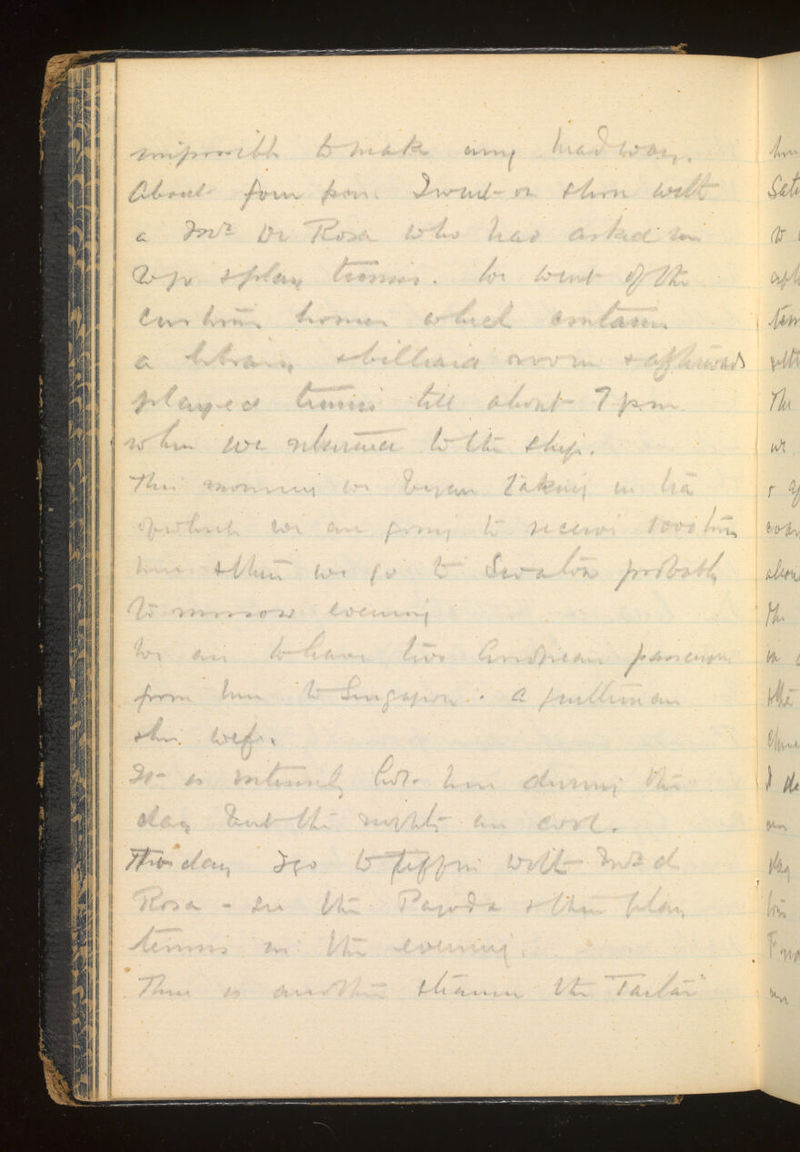 impossible to make any headway.
About four p.m. I went on shore with
a Mr De Rosa who had asked me
to go & play tennis. We went
customs houses which contains
a library & billiard room & afterwards
played tennis till about 7 pm
when we returned to the ship.
This morning we began taking in tea
of which we are going to receive 1000 tons
here & then we go to Swatow probably
to morrow evening
We are to have two American passengers
from here to Singapore. A gentleman
& his wife.
It is intensely hot here during the
day but the nights are cool.
day I go to tiffin with Mr de
Rosa - see the Pagoda & then play
tennis in the evening.
There is another steamer the "Tartar"
Sat
to
The
we
The